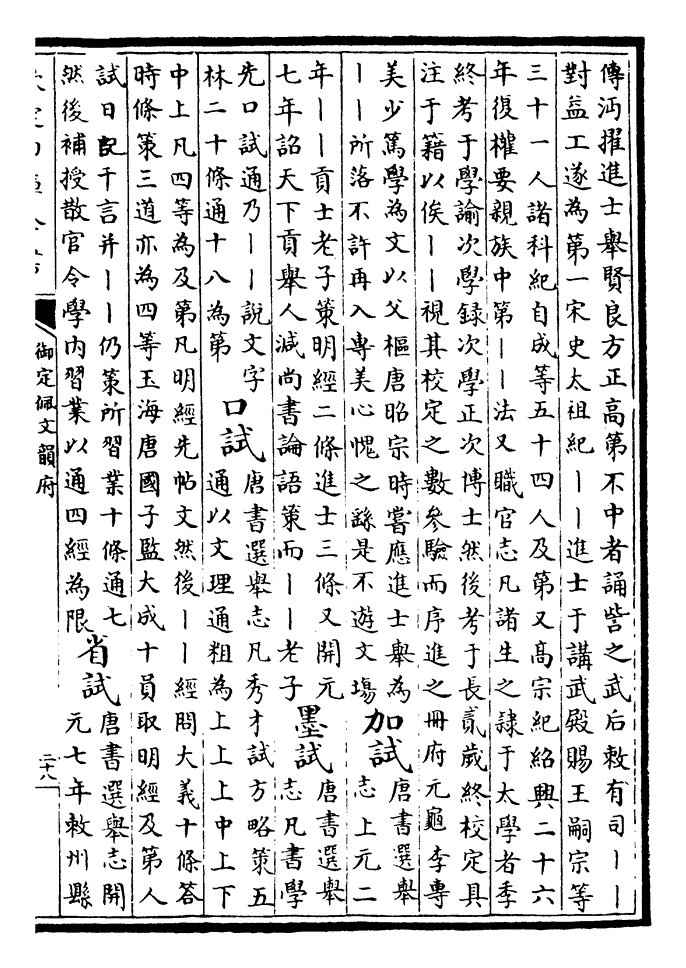 傳沔擢進士舉賢良方正高第不中者誦訾之武后敕有司丨丨
對益工遂為第一宋史太祖紀丨丨進士于講武殿賜王嗣宗等
三十一人諸科紀自成等五十四人及第又高宗紀紹興二十六
年復權要親族中第丨丨法又職官志凡諸生之隸于太學者季
終考于學諭次學録次學正次博士然後考于長貳歲終校定具
注于籍以俟丨丨視其校定之數參驗而序進之冊府元龜李專
美少篤學為文以父樞唐昭宗時嘗應進士舉為
丨丨所落不許再入專美心愧之繇是不遊文塲
加試
唐書選舉
志上元二
年丨丨貢士老子策明經二條進士三條又開元
七年詔天下貢舉人減尚書論語策而丨丨老子
墨試
唐書選舉
志凡書學
先口試通乃丨丨說文字
林二十條通十八為第
口試
唐書選舉志凡秀才試方略策五
通以文理通粗為上上上中上下
中上凡四等為及第凡明經先帖文然後丨丨經問大義十條答
時條策三道亦為四等玉海唐國子監大成十員取明經及第人
試日記千言并丨丨仍策所習業十條通七
然後補授散官令學內習業以通四經為限
省試
唐書選舉志開
元七年敕州縣
御定佩文韻府